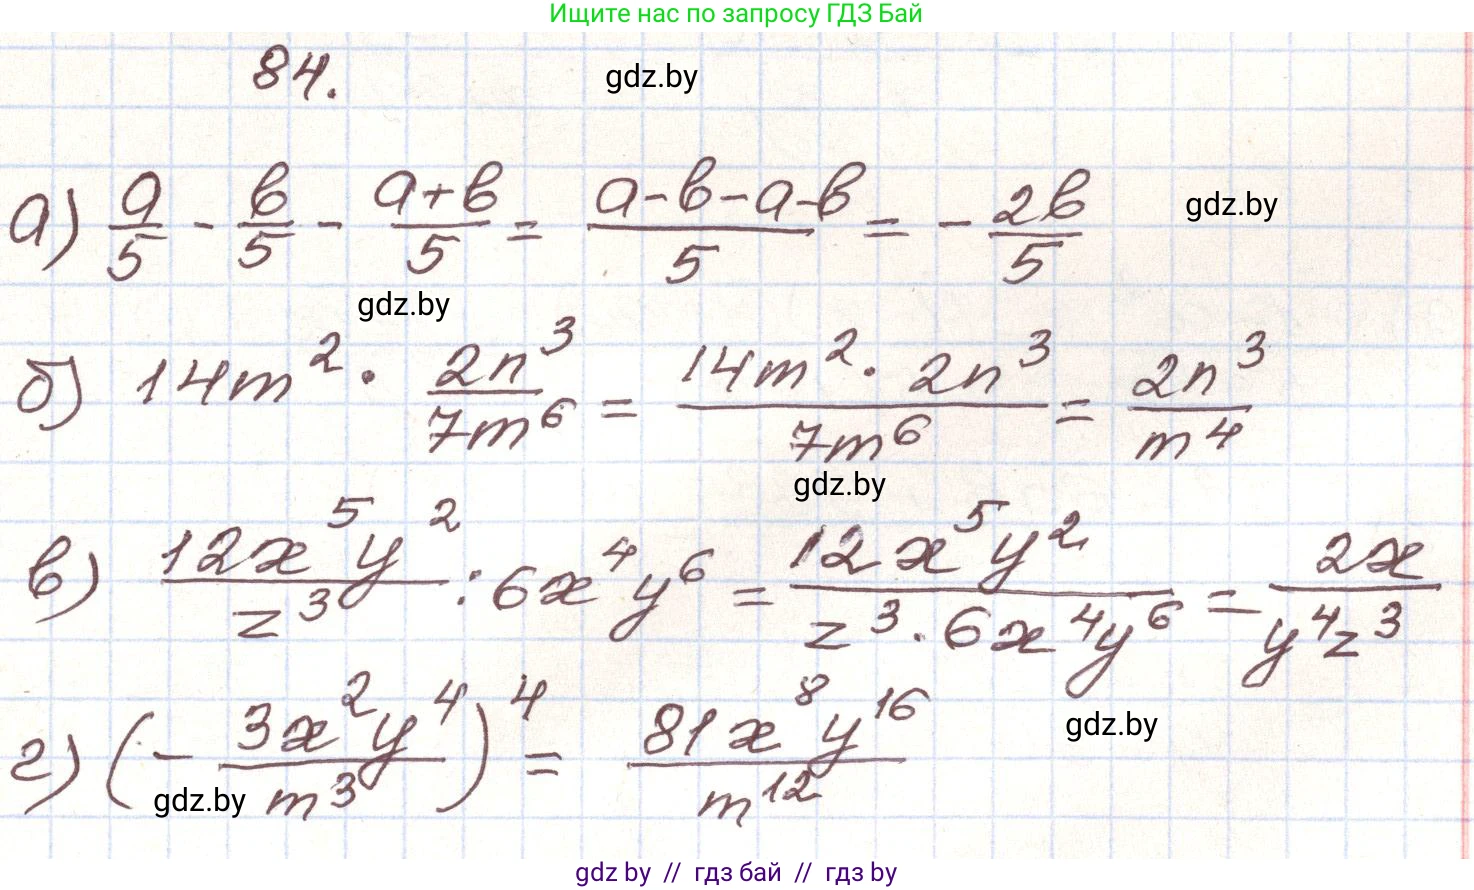 Ищите нас по запросу ГДЗ Бай
84.
gdz.by
а) a/5 - b/5 - (a+b)/5 = (a-b-a-b)/5 = - 2b/5
gdz.by
gdz.by
б) 14m² · 2n³/7m⁶ = (14m² · 2n³)/7m⁶ = 2n³/m⁴
gdz.by
в) 12x⁵y²/z³ : 6x⁴y⁶ = 12x⁵y²/(z³ · 6x⁴y⁶) = 2x/y⁴z³
г) (- 3x²y⁴/m³)⁴ = 81x⁸y¹⁶/m¹²
gdz.by
gdz.by
gdz by // гдз бай // гдз by